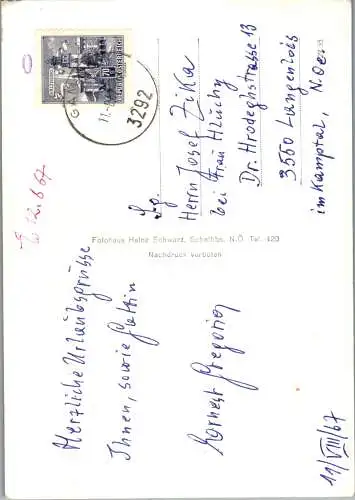 Herzliche Urlaubsgrüsse
Ihnen, sowie Gattin
Earnest Gregorig
11/VIII/67
Fotohaus Heinz Schwarz, Scheibbs, N.Ö. Tel. 420
Nachdruck verboten
REPUBLIK ÖSTERREICH
3292
Herrn Josef Zika
bei Frau Hluchy
Dr. Hrodeghstrasse 13
3550 Langenlois
im Kamptal, N.Oe.
12. 8. 67